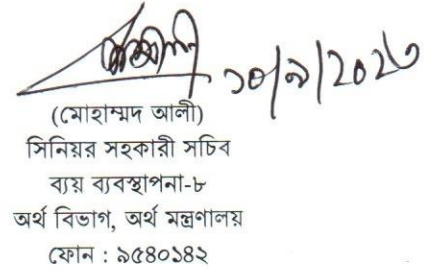 ১০/৯/২০২৩
(মোহাম্মদ আলী)
সিনিয়র সহকারী সচিব
ব্যয় ব্যবস্থাপনা-৮
অর্থ বিভাগ, অর্থ মন্ত্রণালয়
ফোন : ৯৫৪০১৪২